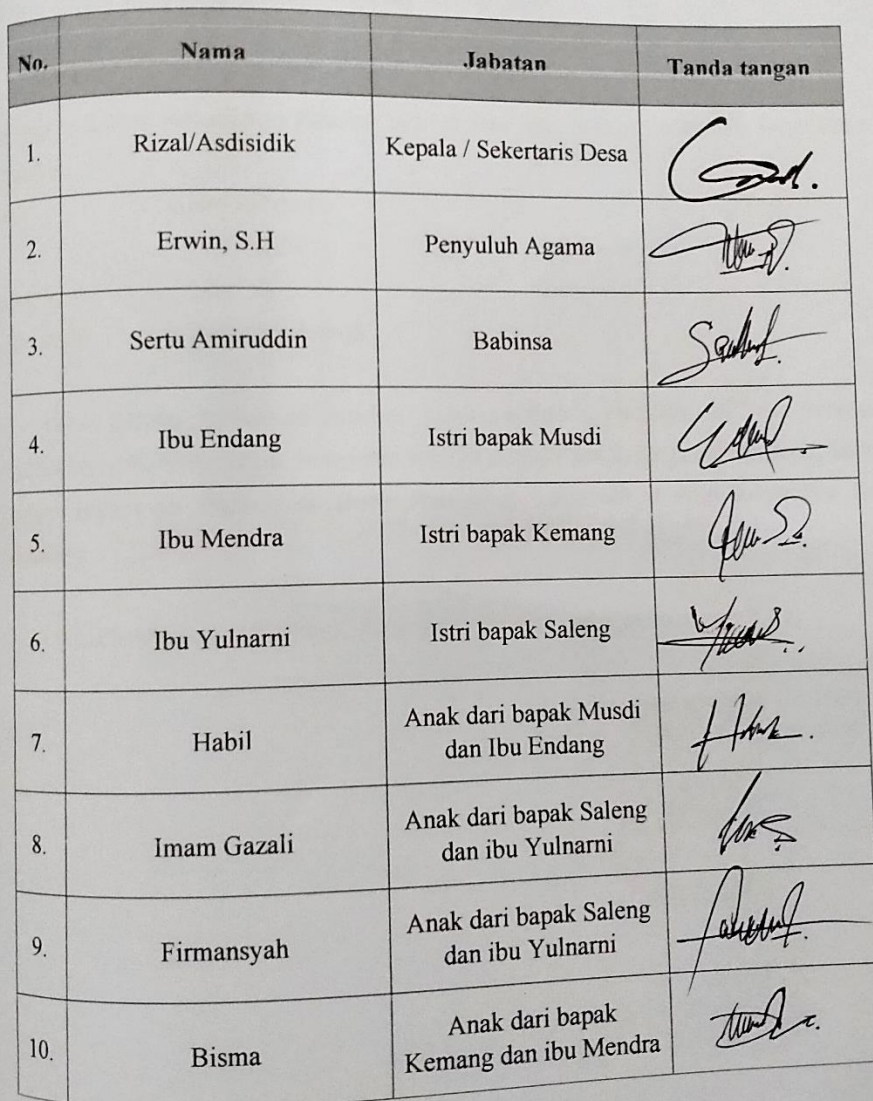 No. Nama Jabatan Tanda tangan
1. Rizal/Asdisidik Kepala / Sekertaris Desa
2. Erwin, S.H Penyuluh Agama
3. Sertu Amiruddin Babinsa
4. Ibu Endang Istri bapak Musdi
5. Ibu Mendra Istri bapak Kemang
6. Ibu Yulnarni Istri bapak Saleng
7. Habil Anak dari bapak Musdi
dan Ibu Endang
8. Imam Gazali Anak dari bapak Saleng
dan ibu Yulnarni
9. Firmansyah Anak dari bapak Saleng
dan ibu Yulnarni
10. Bisma Anak dari bapak
Kemang dan ibu Mendra